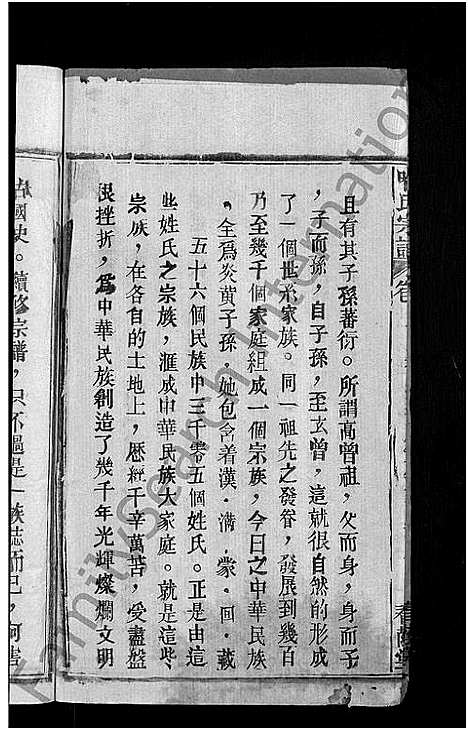 且有其子孫蕃衍。所謂高曾祖，父而身，身而子
，子而孫，自子孫，至玄曾，這就很自然的形成
了一個世系家族。同一祖先之發脊，發展到幾百
乃至幾千個家庭組成一個宗族，今日之中華民族
，全爲炎黄子孫，她包含着漢．滿．蒙．回．藏
五十六個民族中三千零五個姓氏。正是由這
些姓氏之宗族，滙成中華民族大家庭。就是這些
宗族，在各自的土地上，歷經千辛萬苦，受盡盤
艮挫折，爲中華民族創造了幾千年光輝燦爛文明
國史。續修宗譜，只不過是一族誌而已，何害
氏宗譜 卷
FamilySearch International